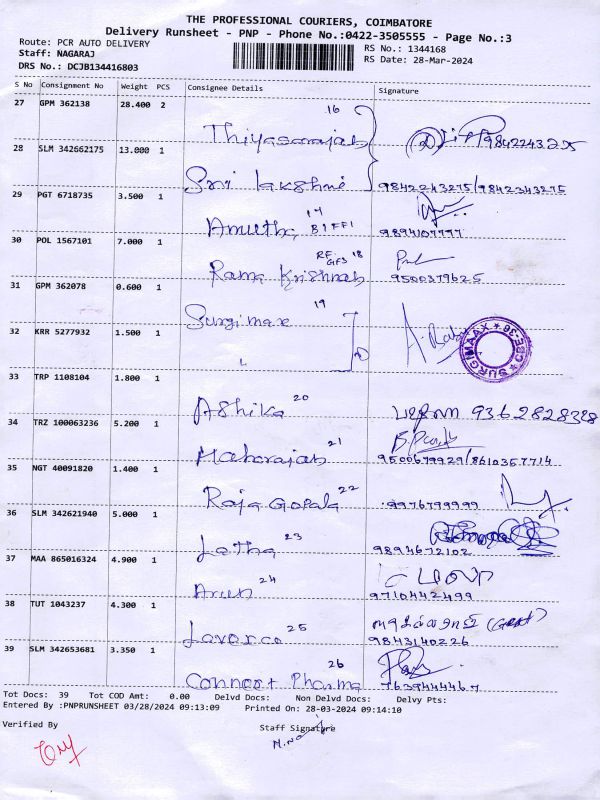 THE PROFESSIONAL COURIERS, COIMBATORE
Delivery Runsheet - PNP - Phone No.:0422-3505555 - Page No.:3
Route: PCR AUTO DELIVERY
RS No.: 1344168
Staff: NAGARAJ
RS Date: 28-Mar-2024
DRS No.: DCJB134416803
S No Consignment No Weight PCS Consignee Details Signature
27 GPM 362138 28.400 2
16
Thiyagarajah 9842243275
28 SLM 342662175 13.000 1
Sri lakshmi 9842243275/9842343275
29 PGT 6718735 3.500 1
17
Amutha BIFFI 9894107777
30 POL 1567101 7.000 1
RF GF3 18
Rama Krishnah 9500379625
31 GPM 362078 0.600 1
19
Surgimax
32 KRR 5277932 1.500 1
A. Babu
SURGIMAAX * CBE-36 *
33 TRP 1108104 1.800 1
Ashika 20 9362828328
34 TRZ 100063236 5.200 1
Maharajah 21 9500679929/8610357714
35 NGT 40091820 1.400 1
Raja Gopala 22 9976799999
36 SLM 342621940 5.000 1
Latha 23 9894672102
37 MAA 865016324 4.900 1
Arun 24 9710442499
38 TUT 1043237 4.300 1
Lavorco 25 9843140226
39 SLM 342653681 3.350 1
26
Connect Pharma 7639444467
Tot Docs: 39 Tot COD Amt: 0.00 Delvd Docs: Non Delvd Docs: Delvy Pts:
Entered By :PNPRUNSHEET 03/28/2024 09:13:09 Printed On: 28-03-2024 09:14:10
Verified By Staff Signature
M.No